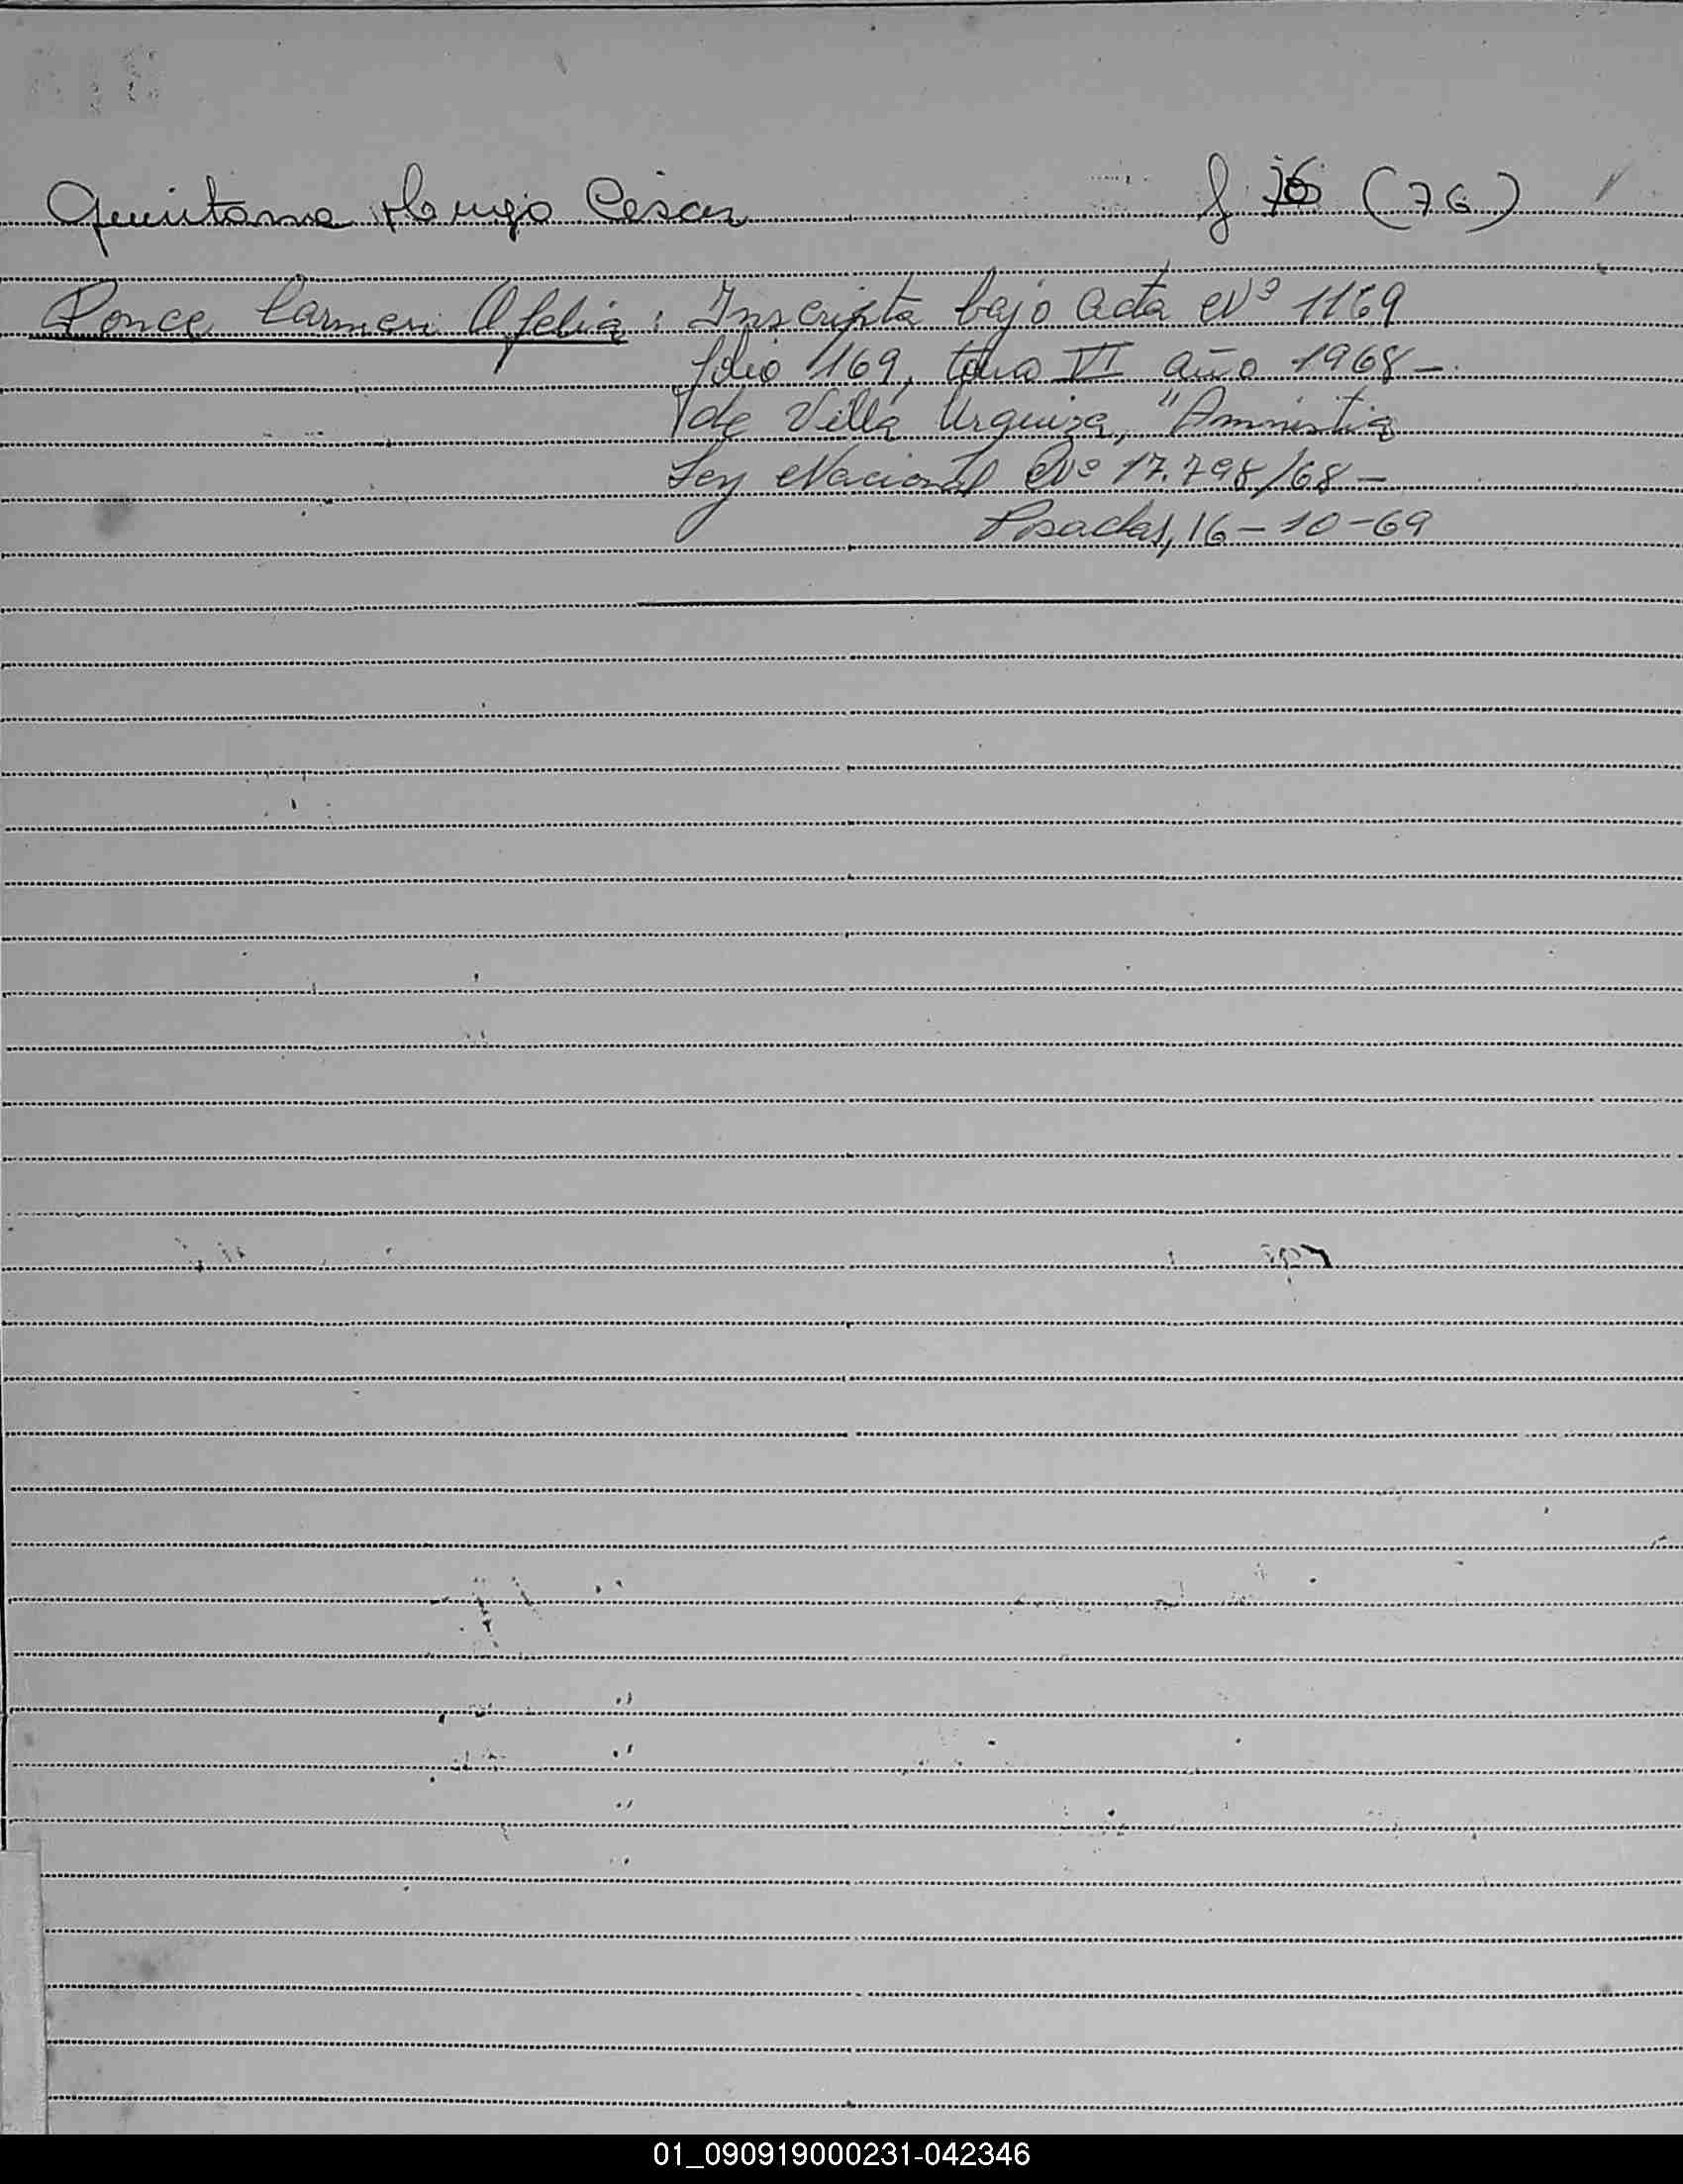 Quintana Hugo César f 76 (76)
Ponce Carmen Ofelia: Inscripta bajo acta Nº 1169
folio 169, tomo VI año 1968 -
de Villa Urquiza, "Amnistia
Ley Nacional Nº 17.798/68 -
Posadas, 16-10-69
01_090919000231-042346